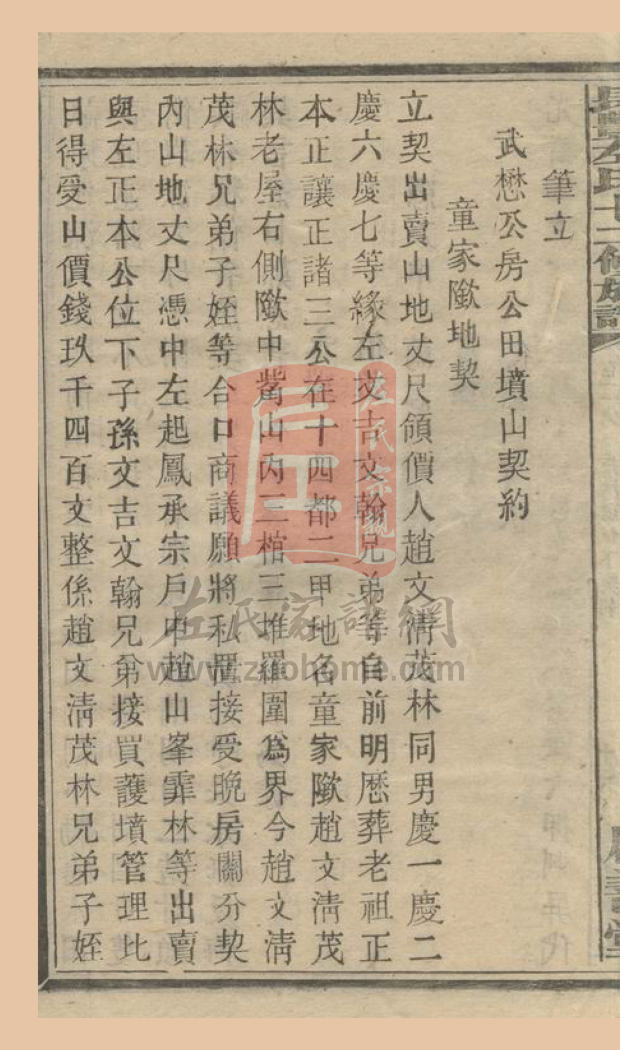 筆立
武懋公房公田墳山契約
童家墩地契
立契出賣山地丈尺領價人趙文清茂林同男慶一慶二
慶六慶七等緣左文吉文翰兄弟等自前明歷葬老祖正
本正讓正諸三公在十四都二甲地名童家墩趙文清茂
林老屋右側墩中崙山內三棺三堆羅圍為界今趙文清
茂林兄弟子姪等合口商議願將私置接受晚房關分契
內山地丈尺憑中左起鳳承宗戶中趙山峯霏林等出賣
與左正本公位下子孫文吉文翰兄弟接買護墳管理比
日得受山價錢玖千四百文整係趙文清茂林兄弟子姪
左氏家譜網
www.zuohome.com